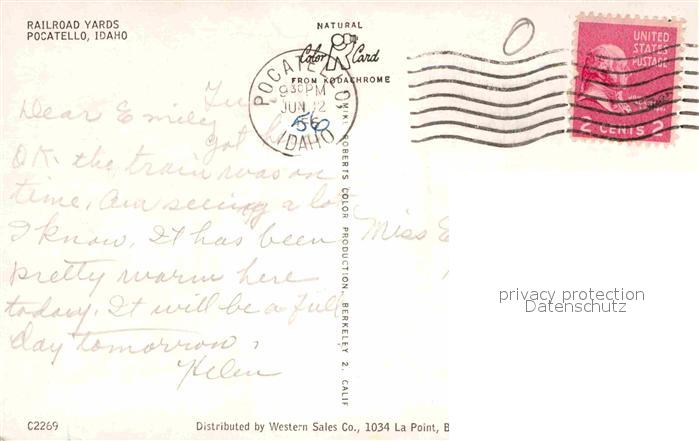 RAILROAD YARDS
POCATELLO, IDAHO
NATURAL
Color Card
FROM KODACHROME
POCATELLO
9 30 PM
JUN 12
56
IDAHO
UNITED
STATES
POSTAGE
2 CENTS 2
Tue
Dear Emily
got here
OK. the train was on
time. Am seeing a lot
I know. It has been
pretty warm here
today. It will be a full
day tomorrow.
Helen
Miss E
MIKE ROBERTS COLOR PRODUCTION, BERKELEY 2, CALIF
privacy protection
Datenschutz
C2269
Distributed by Western Sales Co., 1034 La Point, B